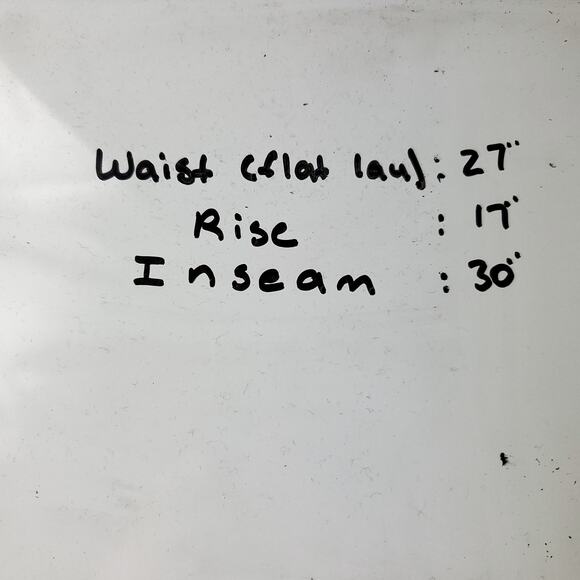 Waist (flat lay): 27"
Rise : 17"
Inseam : 30"